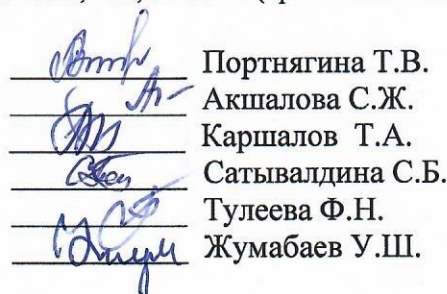 Портнягина Т.В.
Акшалова С.Ж.
Каршалов Т.А.
Сатывалдина С.Б.
Тулеева Ф.Н.
Жумабаев У.Ш.